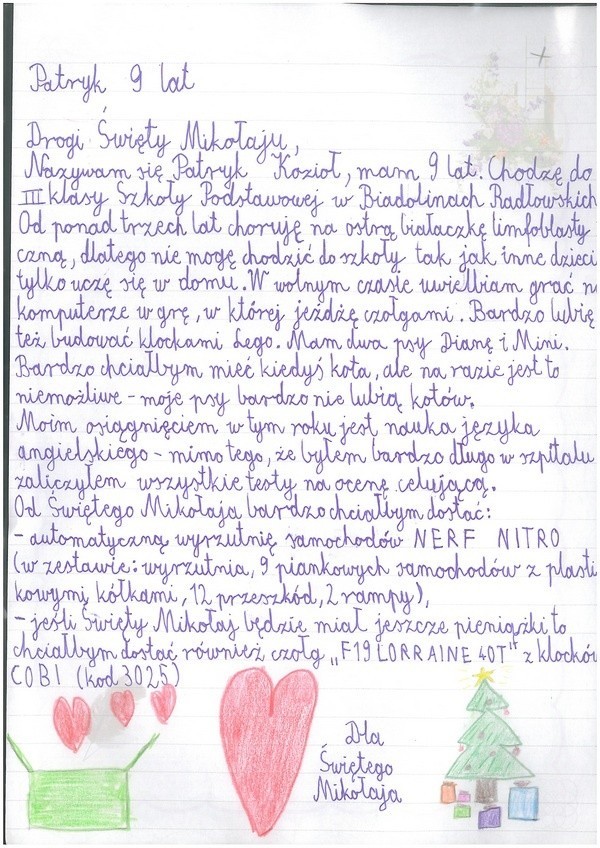 Patryk 9 lat
Drogi Święty Mikołaju,
Nazywam się Patryk Kozioł, mam 9 lat. Chodzę do
III klasy Szkoły Podstawowej w Biadolinach Radłowskich
Od ponad trzech lat choruję na ostrą białaczkę limfoblasty
czną, dlatego nie mogę chodzić do szkoły tak jak inne dzieci
tylko uczę się w domu. W wolnym czasie uwielbiam grać na
komputerze w grę, w której jeżdżę czołgami. Bardzo lubię
też budować klockami Lego. Mam dwa psy Dianę i Mini.
Bardzo chciałbym mieć kiedyś kota, ale na razie jest to
niemożliwe - moje psy bardzo nie lubią kotów.
Moim osiągnięciem w tym roku jest nauka języka
angielskiego - mimo tego, że byłem bardzo długo w szpitalu
zaliczyłem wszystkie testy na ocenę celującą.
Od Świętego Mikołaja bardzo chciałbym dostać:
- automatyczną wyrzutnię samochodów NERF NITRO
(w zestawie: wyrzutnia, 9 piankowych samochodów z plasti
kowymi kółkami, 12 przeszkód, 2 rampy),
- jeśli Święty Mikołaj będzie miał jeszcze pieniążki to
chciałbym dostać również czołg „F19 LORRAINE 40T" z klocków
COBI (kod 3025)
Dla
Świętego
Mikołaja